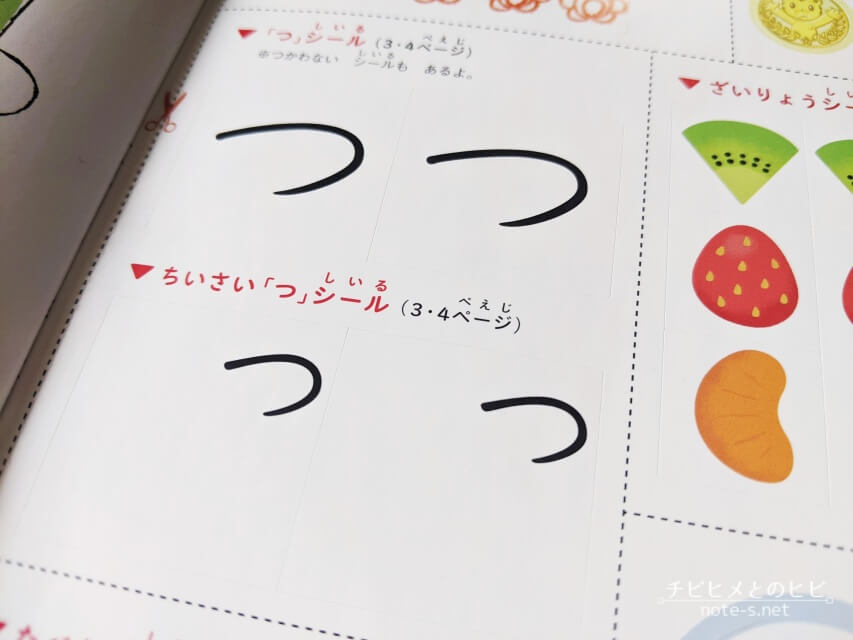 ▼「つ」シール（3・4ページ）
しいる
ぺえじ
※つかわない シールも あるよ。
しいる
つ つ
▼ちいさい「つ」シール（3・4ページ）
しいる
ぺえじ
っ っ
▼ざいりょうシー
しい
チビヒメとのヒビ。
note-s.net